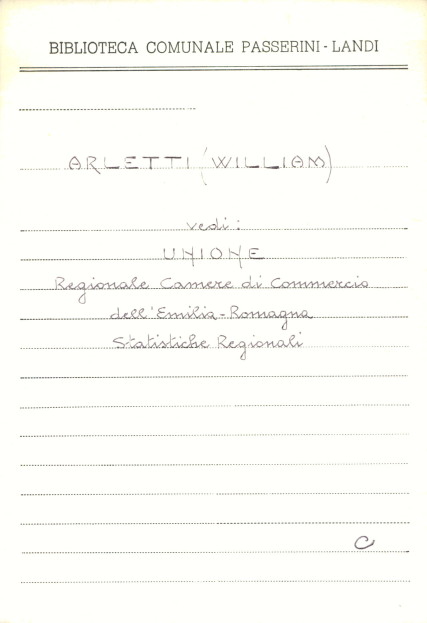 BIBLIOTECA COMUNALE PASSERINI - LANDI
ARLETTI (WILLIAM)
vedi:
UNIONE
Regionale Camere di Commercio
dell'Emilia-Romagna
Statistiche Regionali
C